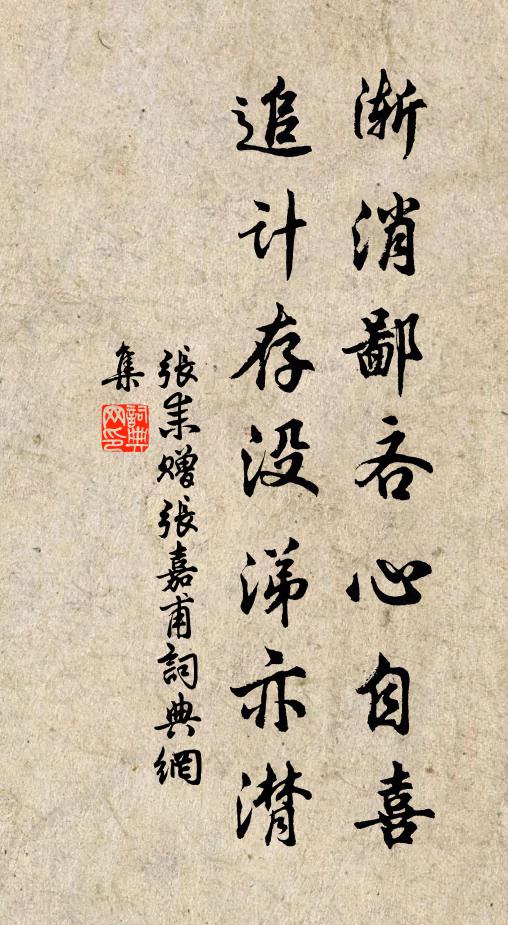 渐消鄙吝心自喜
追计存没涕亦潸
張耒贈張嘉甫詞典網
集
詞典
网印